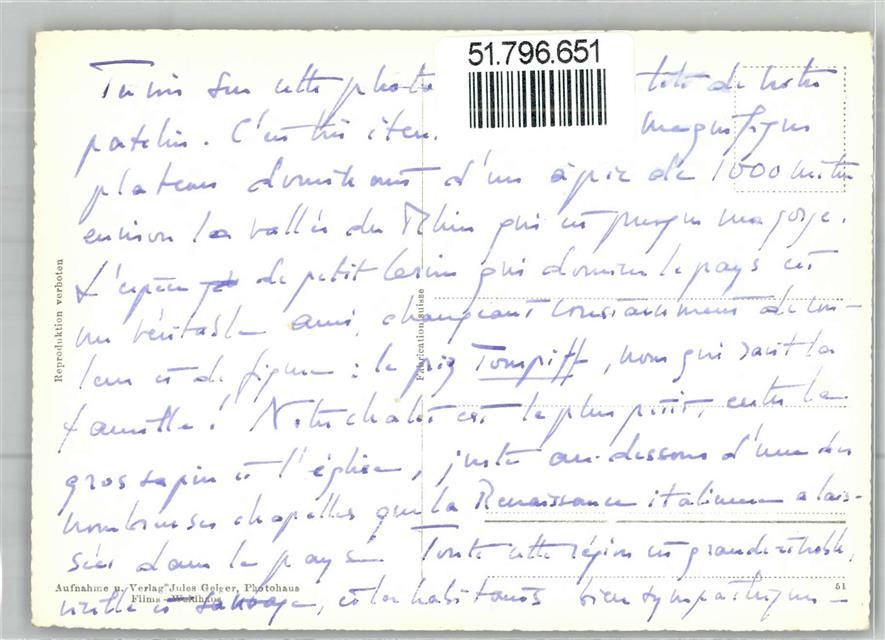 51.796.651
Tu vois sur cette photo tité de notre
patelin. C'est très magnifique
plateau dominant d'un à pic de 1000 mètres
environ la vallée du Rhin qui est presque une gorge.
L'espèce de petit qui domine le pays est
un véritable ami, changeant constamment de cou-
leur et de figure : le piz Tompiff, nom qui sent la
famille ! Notre chalet est le plus petit, entre le
gros sapin et l'église, juste au-dessous d'une des
nombreuses chapelles que la Renaissance italienne a lais-
sées dans le pays. Toute cette région est grande et noble,
vieille et sauvage, et les habitants bien sympathiques –
Reproduktion verboten
Fabrication suisse
Aufnahme u. Verlag Jules Geiger, Photohaus
Flims - Waldhaus
51